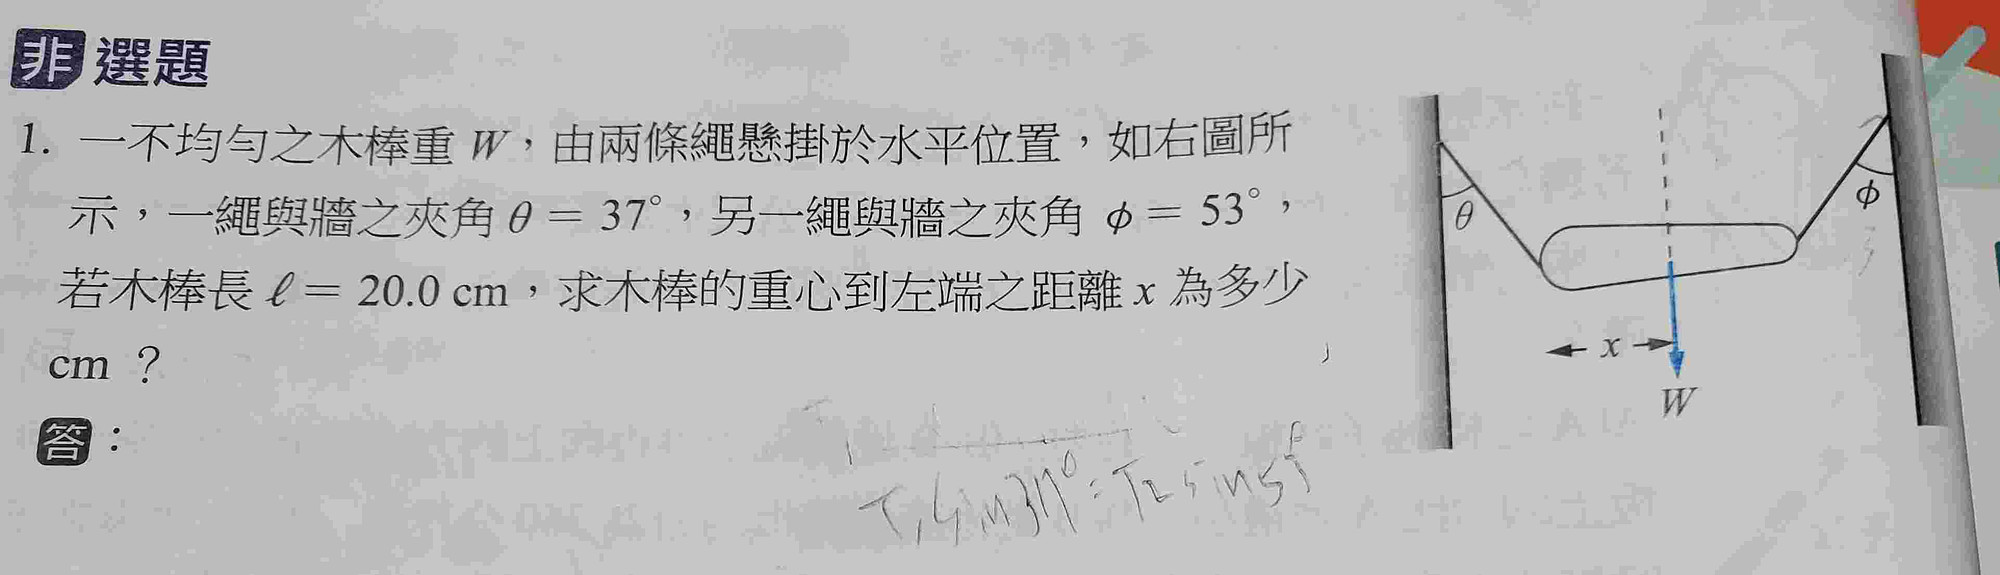 非選題
1. 一不均勻之木棒重 W，由兩條繩懸掛於水平位置，如右圖所
示，一繩與牆之夾角 θ = 37°，另一繩與牆之夾角 ϕ = 53°，
若木棒長 ℓ = 20.0 cm，求木棒的重心到左端之距離 x 為多少
cm ？
答：
θ
ϕ
x
W
T₁ sin37° = T₂ sin53°